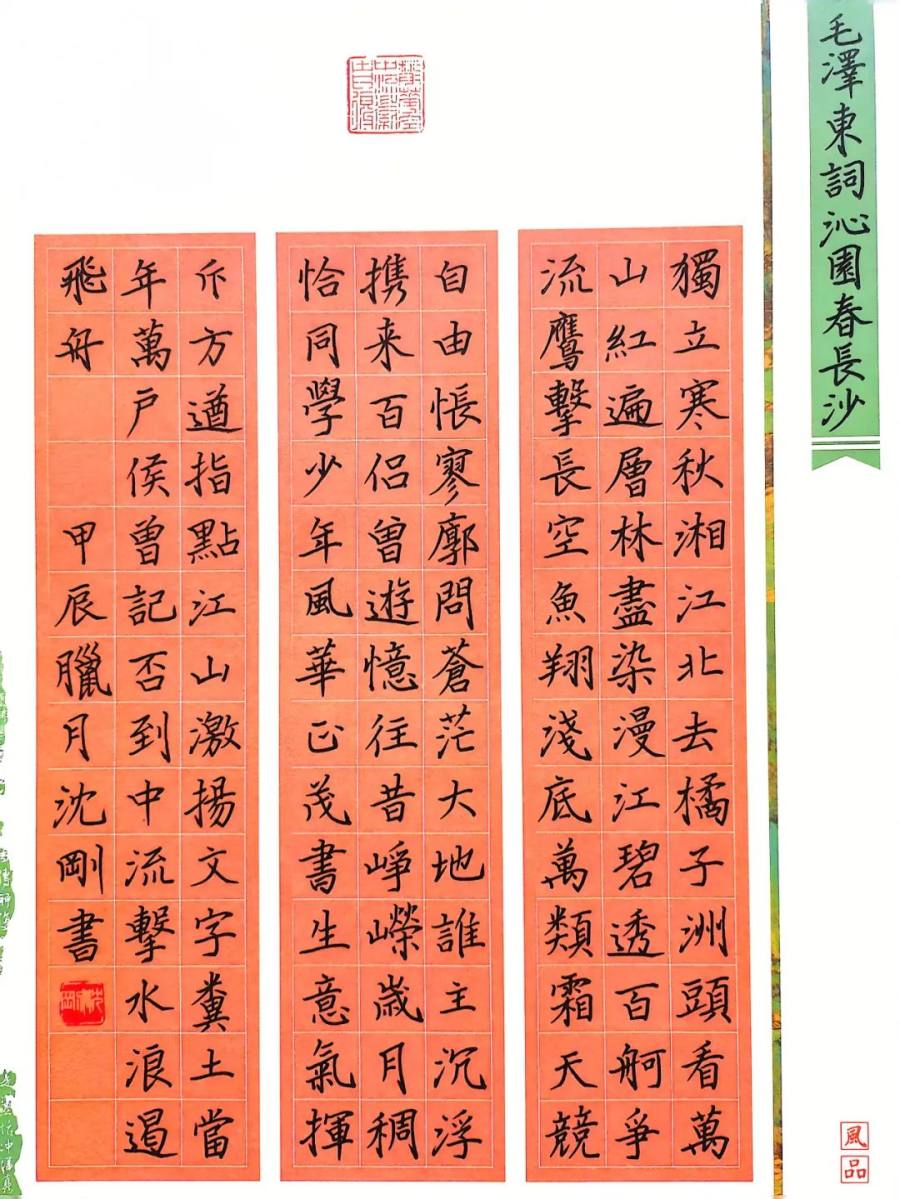 毛澤東詞沁園春長沙
獨立寒秋湘江北去橘子洲頭看萬
山紅遍層林盡染漫江碧透百舸爭
流鷹擊長空魚翔淺底萬類霜天競
自由悵寥廓問蒼茫大地誰主沉浮
携来百侣曾遊憶往昔崢嶸歲月稠
恰同學少年風華正茂書生意氣揮
斥方遒指點江山激揚文字糞土當
年萬户侯曾記否到中流擊水浪遏
飛舟 甲辰臘月沈剛書
風品